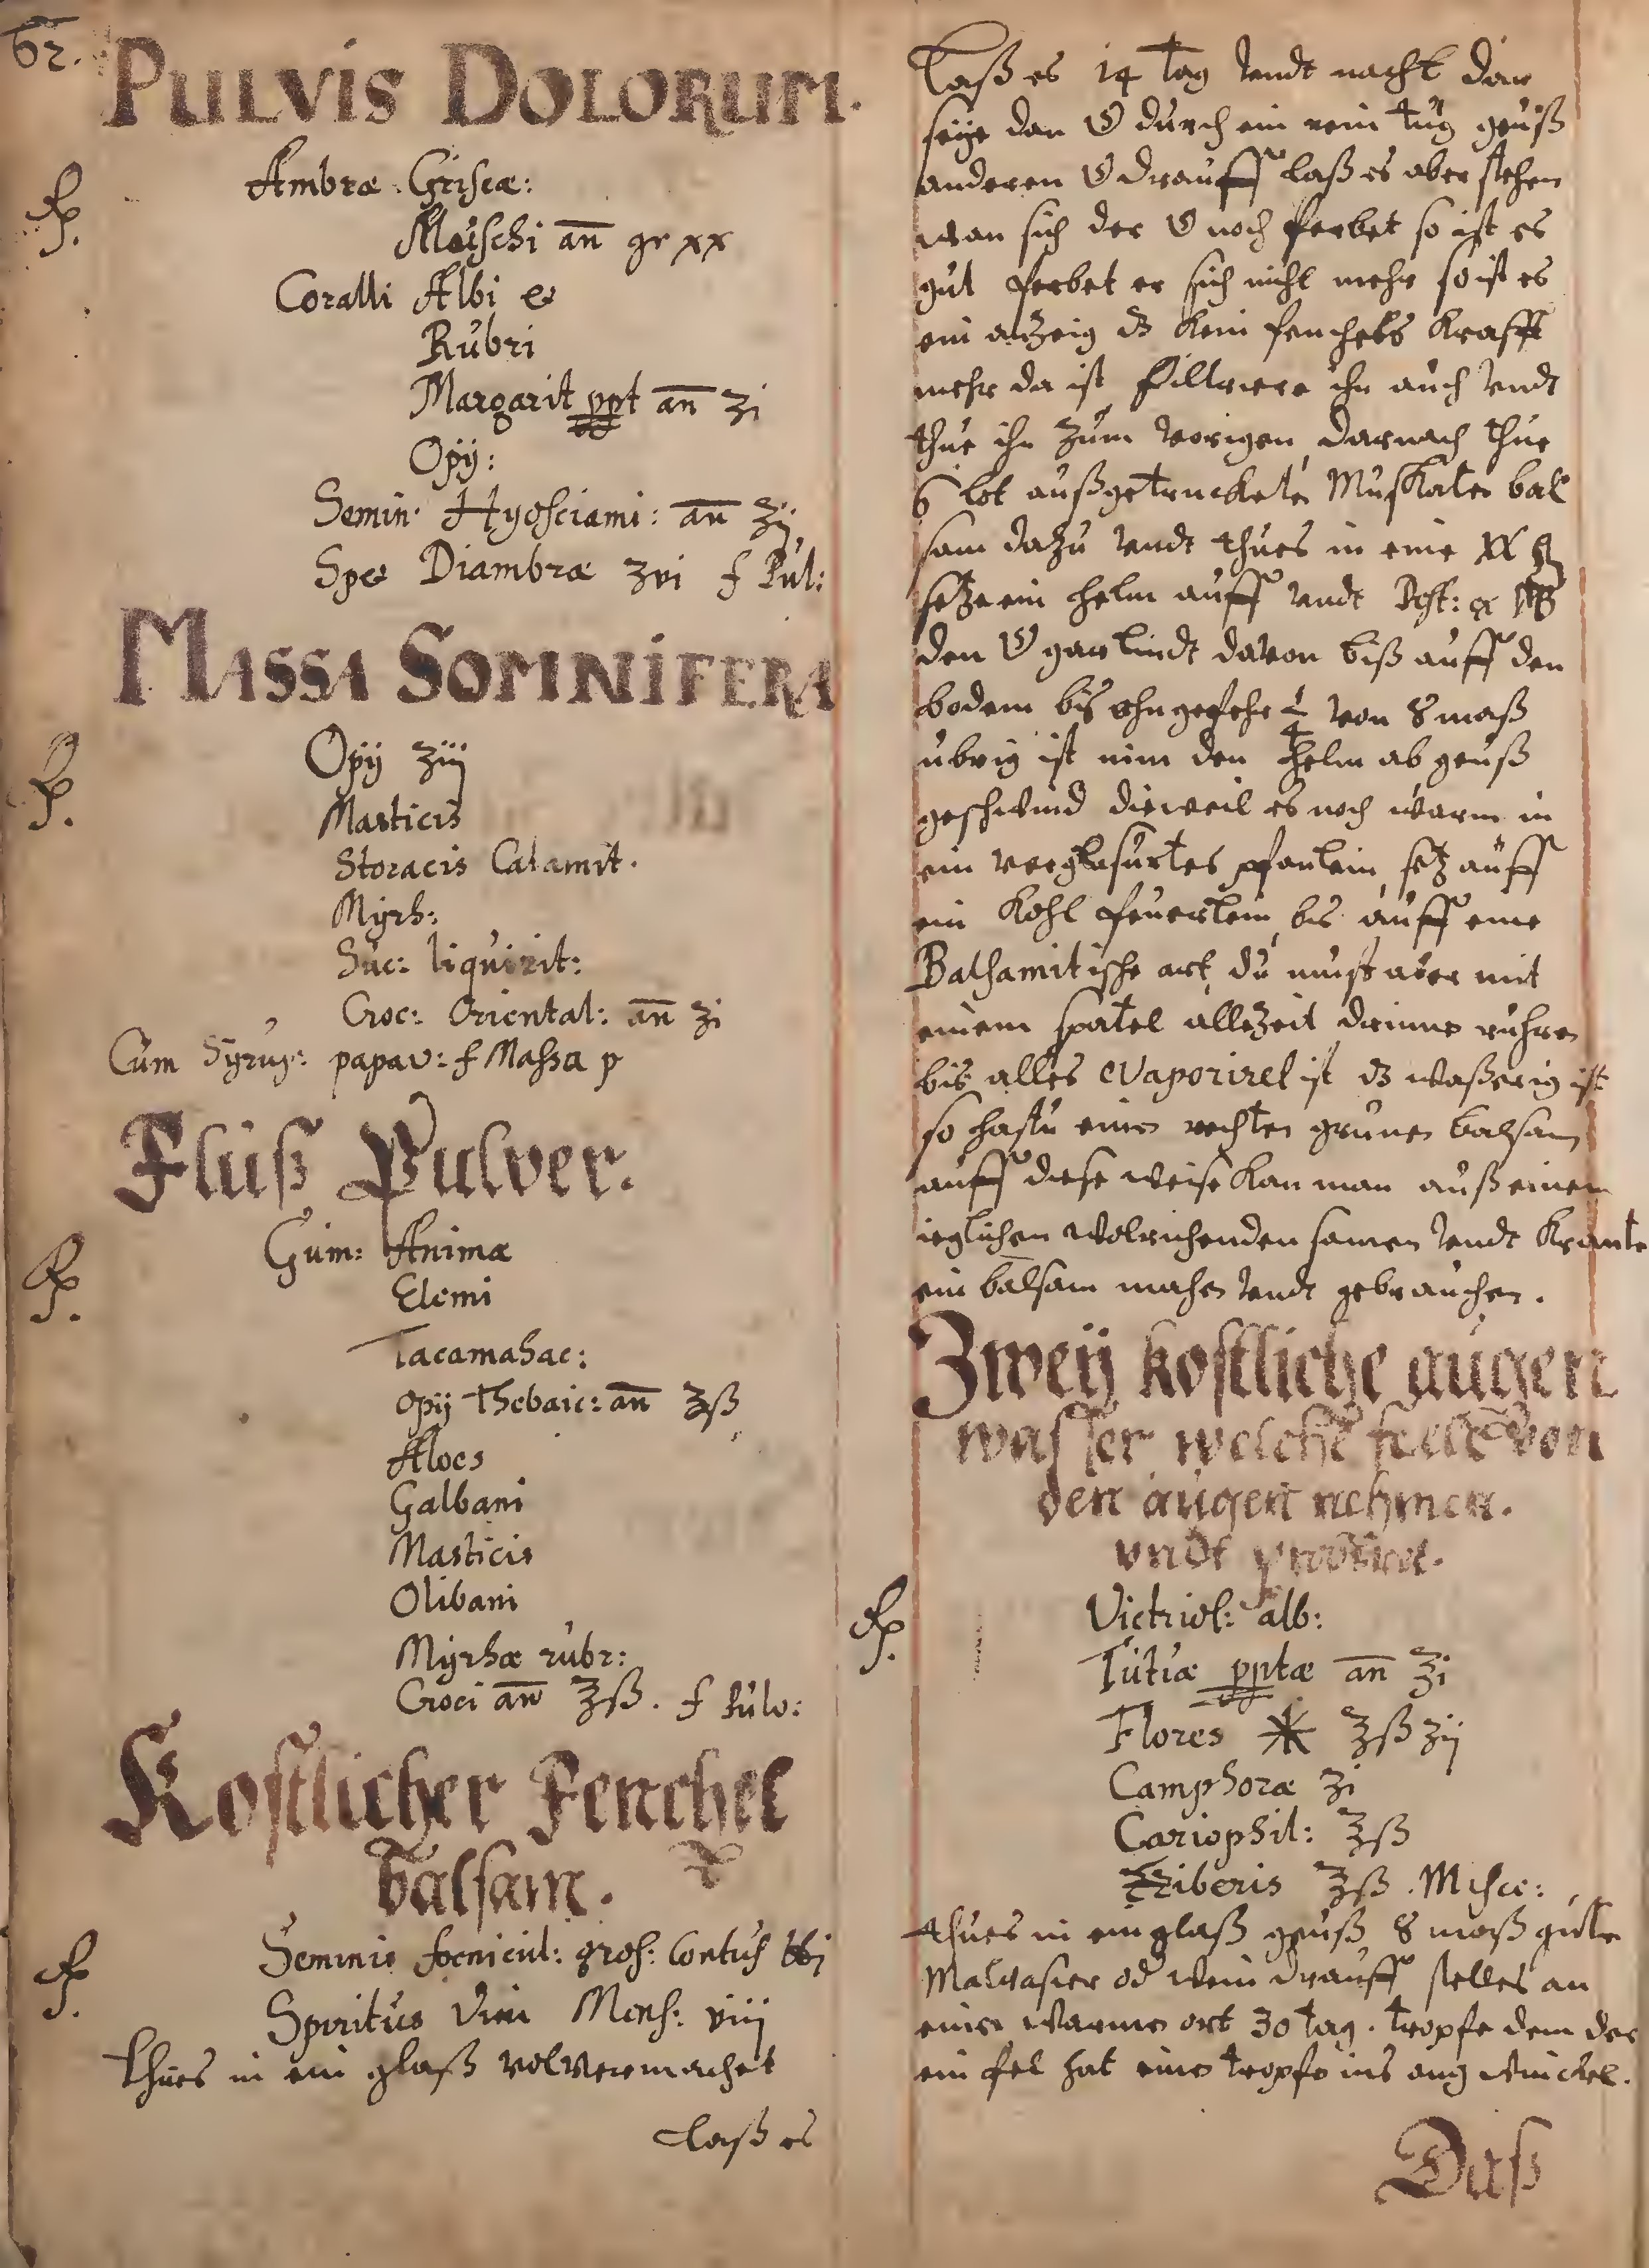 62.
PULVIS DOLORUM.
Rp.
Ambræ Griseæ:
Moischi an gr xx
Coralli Albi &
Rubri
Margarit ppt an ʒi
Opÿ:
Semin: Hyosciami: an ʒij
Spec Diambræ ʒvi f Pul:
MASSA SOMNIFERA
Rp.
Opÿ ʒiij
Masticis
Storacis Calamit.
Myrh:
Suc: liquirit:
Croc: Oriental: an ʒi
Cum Syrup: papav: f Massa p
Fluß Pulver.
Rp.
Gum: Animæ
Elemi
Tacamahac:
Opÿ Thebaic: an ʒß
Aloes
Galbani
Masticis
Olibani
Myrhæ rubr:
Croci an ʒß. f Pulv:
Kostlicher Fenchel
balsam.
Rp.
Seminis foenicul: gros: Contus ℔j
Spiritus Vini Mens: viij
thues in ein glaß wol vermachet
Laß es
Laß es 14 tag vndt nacht
seÿe den durch ein rein tug geuß
anderen drauff laß es aber stehen
wan sich der noch ferbet so ist es
gut ferbet er sich nicht mehr so ist es
ein anzeig dz kein fenchels krafft
mehr da ist filtriere ihn auch vndt
thue ihn zum vorigen darnach thue
6 lot außgetruckete Muskaten bal
sam dazu vndt thues in eine
setze ein helm auff vndt
den gar lindt davon biß auff den
bodem bis ohngefehr ¼ von 8 maß
ubrig ist nim den helm ab geuß
geschwind dieweil es noch warm in
ein verglasurtes pfanlein, setz auff
ein Kohl feuerlein, bis auff eine
Balsamitische art, du must aber mit
einem spatel allezeit drinne ruhren
bis alles evaporiret ist dz waßerig ist
so hastu einen rechten grunen balsam
auff diese weise kan man auß einem
ieglichen wolrichenden samen vndt
ein balsam machen vndt gebrauchen.
Zweÿ kostliche augen
wasser welche von
den augen nehmen.
vndt
Rp.
Victriol: alb:
Tutiæ pptæ an ʒi
Flores ✱ ʒß ʒij
Camphoræ ʒi
Cariophil: ʒß
Ziberis ʒß. Misce:
thues in ein glaß geuß 8 maß gute
Malvasier od wein drauff stelles an
einen warmen ort 30 tag. tropfe dem der
ein fel hat eine tropfe ins aug winckel.
Daß